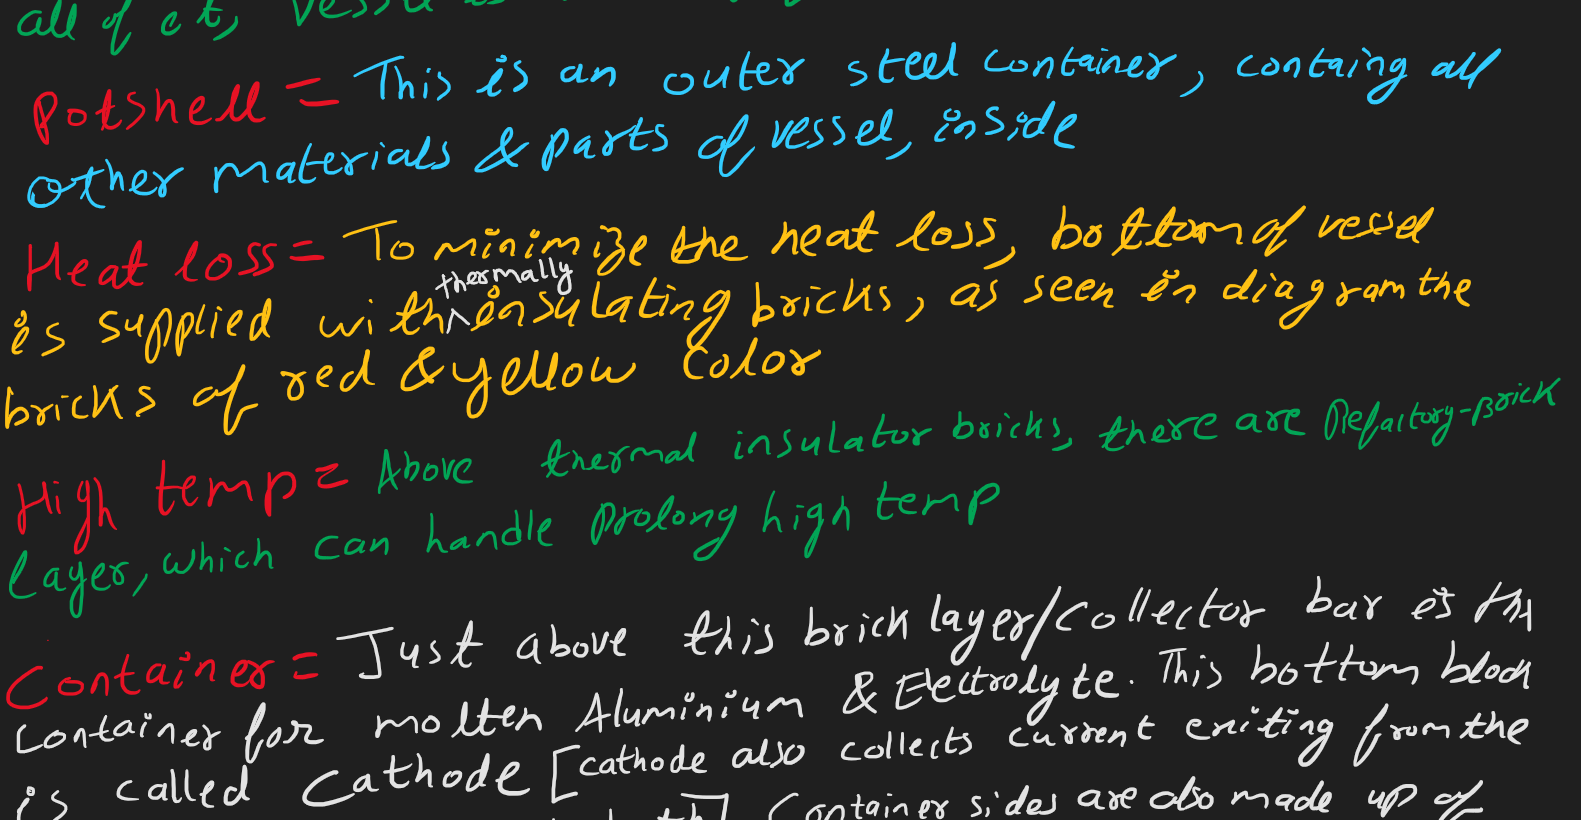 all of it,
Potshell = This is an outer steel container, containg all
other materials & parts of vessel, inside
Heat loss = To minimize the heat loss, bottom of vessel
is supplied with thermally insulating bricks, as seen in diagram the
bricks of red & yellow color
High temp = Above thermal insulator bricks, there are Refactory-Brick
layer, which can handle prolong high temp
Container = Just above this brick layer/collector bar is the
container for molten Aluminium & Electrolyte. This bottom block
is called Cathode [cathode also collects current exiting from the
] Container sides are also made up of